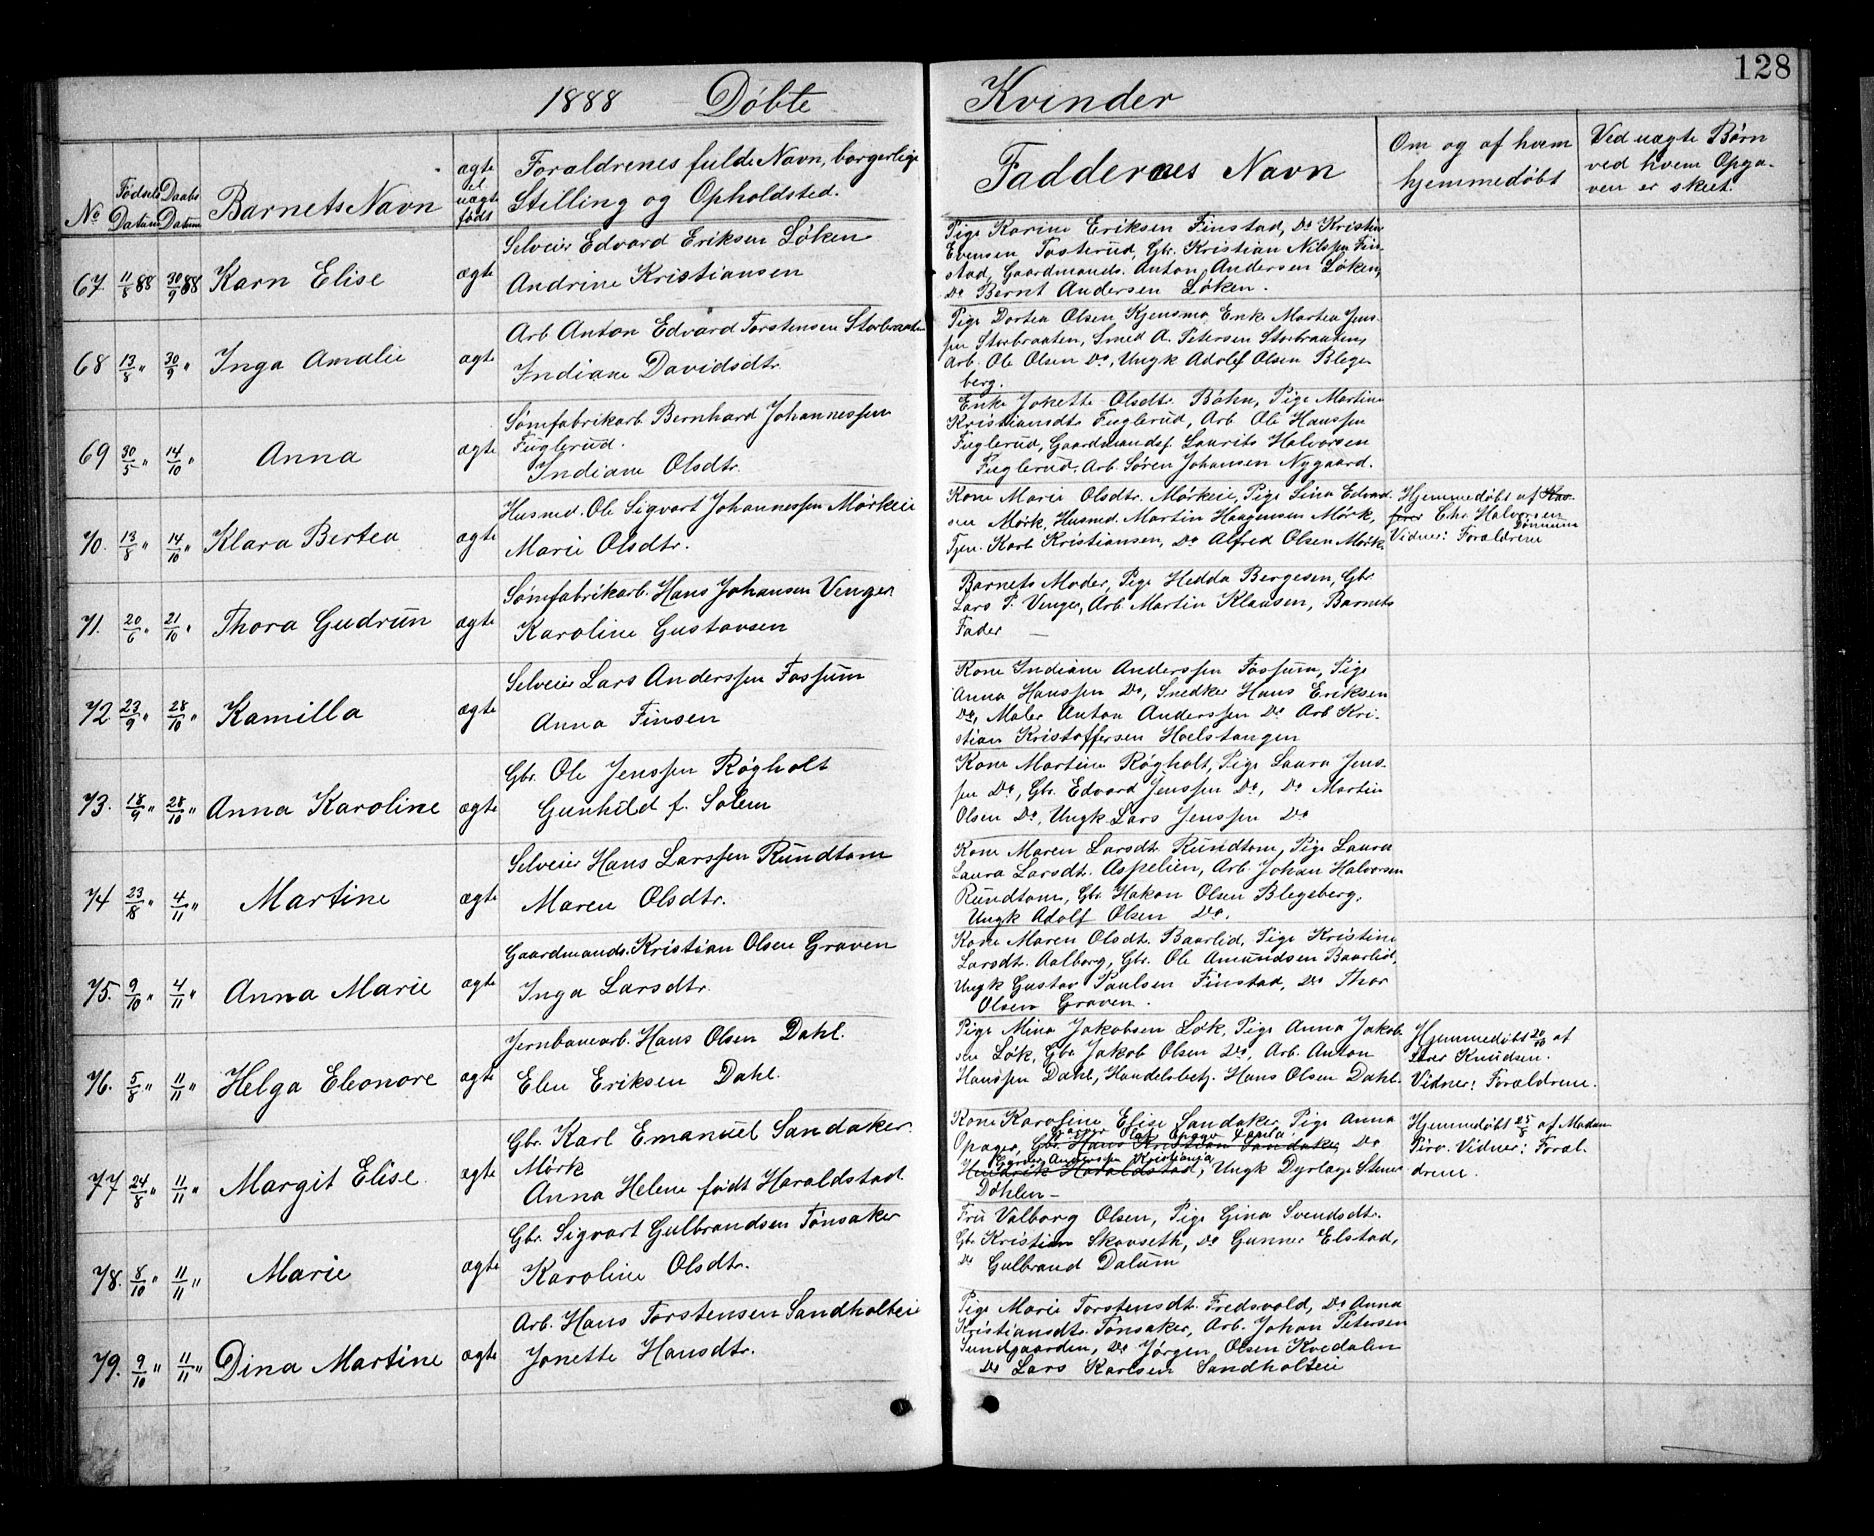 128
1888 Döbte Kvinder
No
Fødsels Datum
Daabs Datum
Barnets Navn
ægte el uægte født
Forældrenes fulde Navn, borgerlige
Stilling og Opholdsted.
Faddernes Navn
Om og af hvem
hjemmedøbt
Ved uægte Børn
ved hvem Opga-
ven er skeet.
67. 11/8 88 30/9 88 Karn Elise ægte
Selveier Edvard Eriksen Löken
Andrine Kristiansen
Pige Karine Eriksen Finstad, Do Kristin
Evensen Tosterud, Gbr. Kristian Nilssen Fin-
stad, Gaardmands. Anton Andersen Löken,
Do Bernt Andersen Löken.
68 13/8 " 30/9 " Inga Amalie ægte
Arb. Anton Edvard Torstensen Storbraaten
Indiane Davidsdtr.
Pige Dortea Olsen Kjensmo Enke Martea Jens-
sen Storbraaten, Smed A. Petersen Storbraaten,
Arb. Ole Olsen Do, Ungk Adolf Olsen Blege-
berg.
69 30/5 " 14/10 " Anna ægte
Sömfabrikarb. Bernhard Johannessen
Fuglerud.
Indiane Olsdtr.
Enke Jokette Olsdtr. Böhn, Pige Martine
Kristiansdtr Fuglerud, Arb Ole Hanssen
Fuglerud, Gaardmandsf. Laurits Halvorsen
Fuglerud, Arb. Sören Johansen Nygaard.
70. 13/8 " 14/10 " Klara Bertea ægte
Husmd. Ole Sigvart Johannessen Mörkeie
Marie Olsdtr.
Kone Marie Olsdtr. Mörkeie, Pige Lina Edvard-
sen Mörk, Husmd. Martin Haagensen Mörk,
Tjen. Karl Kristiansen, Do Alfred Olsen Mörk.
Hjemmedøbt af
Chr. Halvorsen
Vidner: Forældrene
71. 20/6 " 21/10 " Thora Gudrun ægte
Sömfabrikarb. Hans Johansen Venger
Karoline Gustavsen
Barnets Moder, Pige Hedda Bergesen, Gbr.
Lars P. Venger, Arb. Martin Klausen, Barnets
Fader —
72 23/9 " 28/10 " Kamilla ægte
Selveier Lars Anderssen Fossum
Anna Finsen
Kone Indiane Anderssen Fossum, Pige
Anna Hanssen Do, Snedker Hans Eriksen
Do, Maler Anton Anderssen Do Arb Kri-
stian Kristoffersen Hoelstangen
73. 18/9 " 28/10 " Anna Karoline ægte
Gbr. Ole Jenssen Rögholt
Gunhild f. Solem
Kone Martine Rögholt, Pige Laura Jens-
sen Do, Gbr. Edvard Jenssen Do, Do Martin
Olsen Do, Ungk Lars Jenssen Do
74 23/8 " 4/11 " Martine ægte
Selveier Hans Larssen Rundtom
Maren Olsdtr.
Kone Maren Larsdtr. Rundtom, Pige Laura
Laura Larsdtr. Aspelien, Arb. Johan Halvorsen
Rundtom, Gbr. Hakon Olsen Blegeberg,
Ungk Adolf Olsen Do.
75. 9/10 " 4/11 " Anna Marie ægte
Gaardmands. Kristian Olsen Graven
Inga Larsdtr.
Kone Maren Olsdtr. Baarlid, Pige Kristine
Larsdtr. Aalborg, Gbr. Ole Amundsen Baarlid,
Ungk Gustav Paulsen Finstad, Do Thor
Olsen Graven.
76. 5/8 " 11/11 " Helga Eleonore ægte
Jernbanearb. Hans Olsen Dahl.
Elen Eriksen Dahl.
Pige Mina Jakobsen Lök, Pige Anna Jakob-
sen Lök, Gbr. Jakob Olsen Do, Arb. Anton
Hanssen Dahl, Handelsbetj. Hans Olsen Dahl.
Hjemmedøbt 20/10 af
Lærer Knudsen.
Vidner: Forældrene.
77 24/8 " 11/11 " Margit Elise. ægte
Gbr. Karl Emanuel Sandaker
Mörk
Anna Helene født Haraldstad
Kone Karoline Elise Sandaker, Pige Anna
Opager, Gbr. Hans Kristian Sandaker, Do
Garver Anderssen Kristiania
Hendrik Haraldstad, Ungk Dyrlæge Stener
Döhlen —
Hjemmedøbt 25/8 af Madam
Piro. Vidner: Foræl-
drene.
78. 8/10 " 11/11 " Marie ægte
Gbr. Sigvart Gulbrandsen Tönsaker
Karoline Olsdtr.
Fru Valborg Olsen, Pige Gina Svendsdtr.
Gbr. Kristian Skovseth, Do Gunner Elstad,
Do Gulbrand Dalum
79. 9/10 " 11/11 " Dina Martine ægte
Arb. Hans Torstensen Sandholteie
Jonette Hansdtr.
Pige Marie Torstensdtr. Fredsvold, Do Anna
Kristiansdtr. Tönsaker, Arb. Johan Petersen
Sundgaarden, Do Jörgen Olsen Kvedalen
Do Lars Karlsen Sandholteie